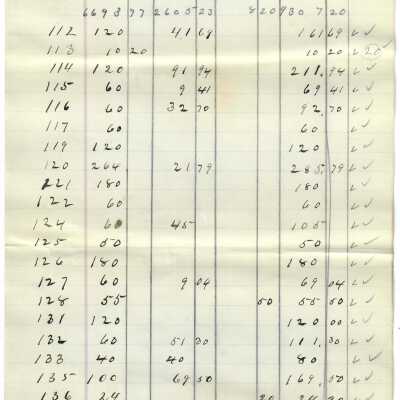 6693 77 2605 23 820930 7 20
112 120 41 69 161 69 ✓✓
113 10 20 10 20 ✓ 20
114 120 91 94 211. 94 ✓✓
115 60 9 41 69 41 ✓✓
116 60 32 70 92. 70 ✓✓
117 60 60 ✓✓
119 120 120 ✓✓
120 264. 21 79 285. 79 ✓✓
121 180 180 ✓✓
122 60 60 ✓✓
124 60 45 105 ✓✓
125 50 50 ✓✓
126 180 180 ✓✓
127 60 9 04 69 04 ✓✓
128 55 50 55 50 ✓✓
131 120 120 00 ✓✓
132 60 51 30 111. 30 ✓✓
133 40 40 80 ✓✓
135 100 69 50 169. 50 ✓✓
136 24 20 24 20 ✓✓